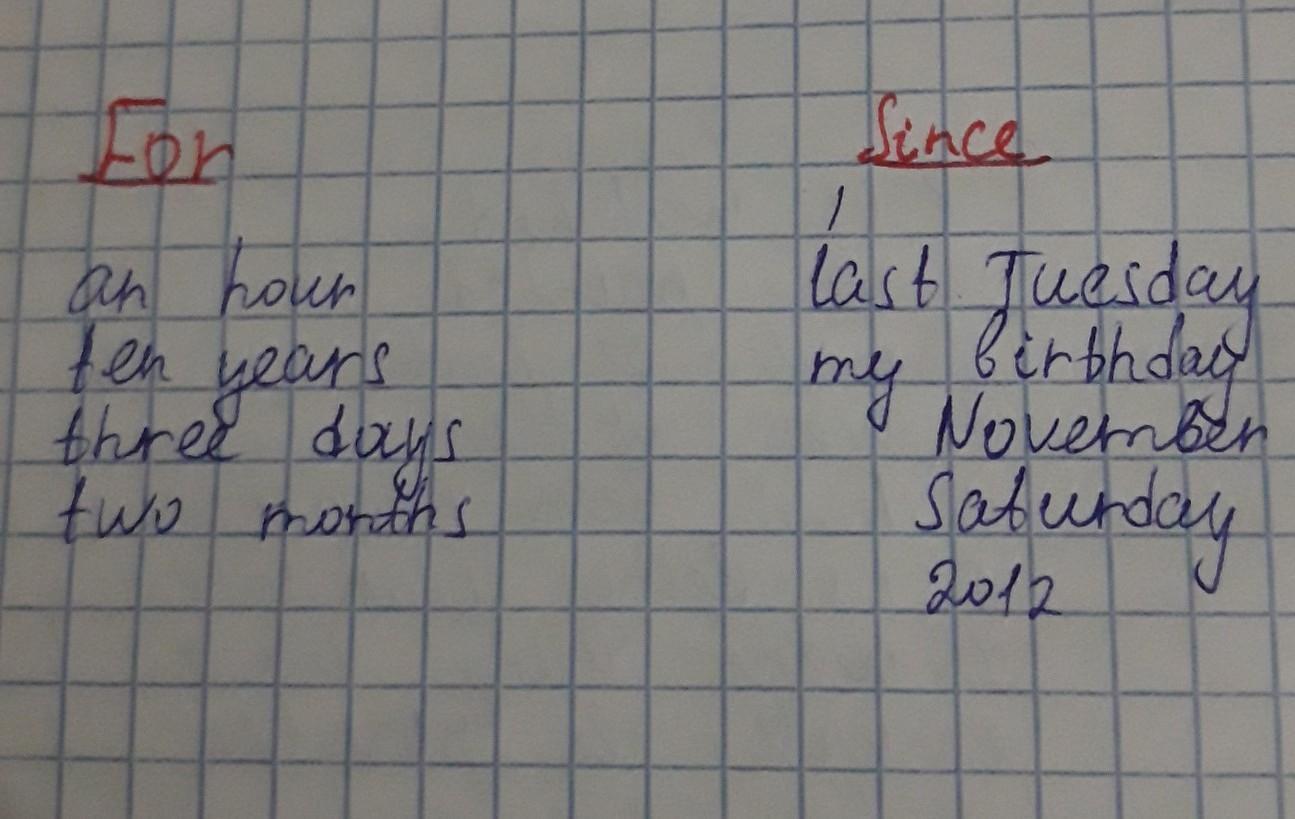 For
an hour
ten years
three days
two months
Since
last Tuesday
my birthday
November
Saturday
2012